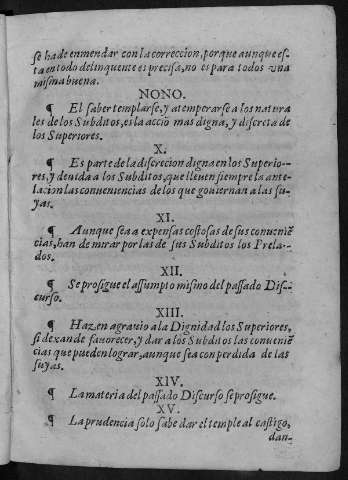 se ha de enmendar con la correccion, porque aunque es-
ta en todo delinquente es precisa, no es para todos vna
misma buena.
NONO.
¶ El saber templarse, y atemperarse a los natura
les de los Subditos, es la acciō mas digna, y discreta de
los Superiores.
X.
¶ Es parte de la discrecion digna en los Superio--
res, y deuida a los Subditos, que lleuen siempre la ante-
lacion las conueniencias de los que gouiernan a las su-
yas.
XI.
¶ Aunque sea a expensas costosas de sus conueniē
cias, han de mirar por las de sus Subditos los Prela-
dos.
XII.
¶ Se prosigue el assumpto mismo del passado Dis--
curso.
XIII.
¶ Hazen agrauio a la Dignidad los Superiores,
si dexan de fauorecer, y dar a los Subditos las conueniē
cias que pueden lograr, aunque sea con perdida de las
suyas.
XIV.
¶ La materia del passado Discurso se prosigue.
XV.
¶ La prudencia solo sabe dar el temple al castigo,
dan-